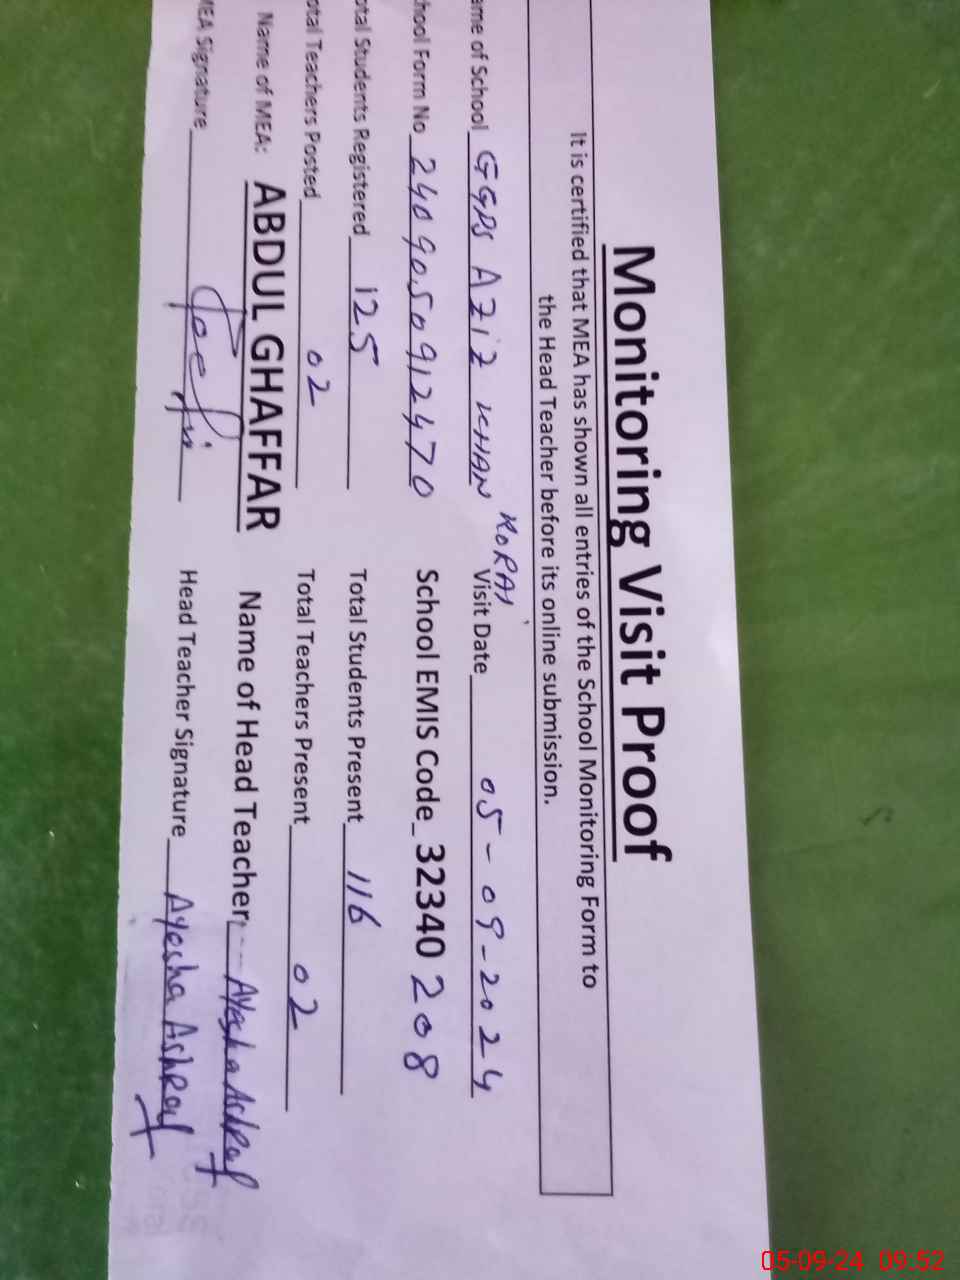 Monitoring Visit Proof
It is certified that MEA has shown all entries of the School Monitoring Form to
the Head Teacher before its online submission.
ame of School GGPS AZIZ KHAN KORAI Visit Date 05-09-2024
hool Form No 2409050912470 School EMIS Code 32340208
otal Students Registered 125 Total Students Present 116
otal Teachers Posted 02 Total Teachers Present 02
Name of MEA: ABDUL GHAFFAR Name of Head Teacher Ayesha Ashraf
MEA Signature Head Teacher Signature Ayesha Ashraf
05-09-24 09:52